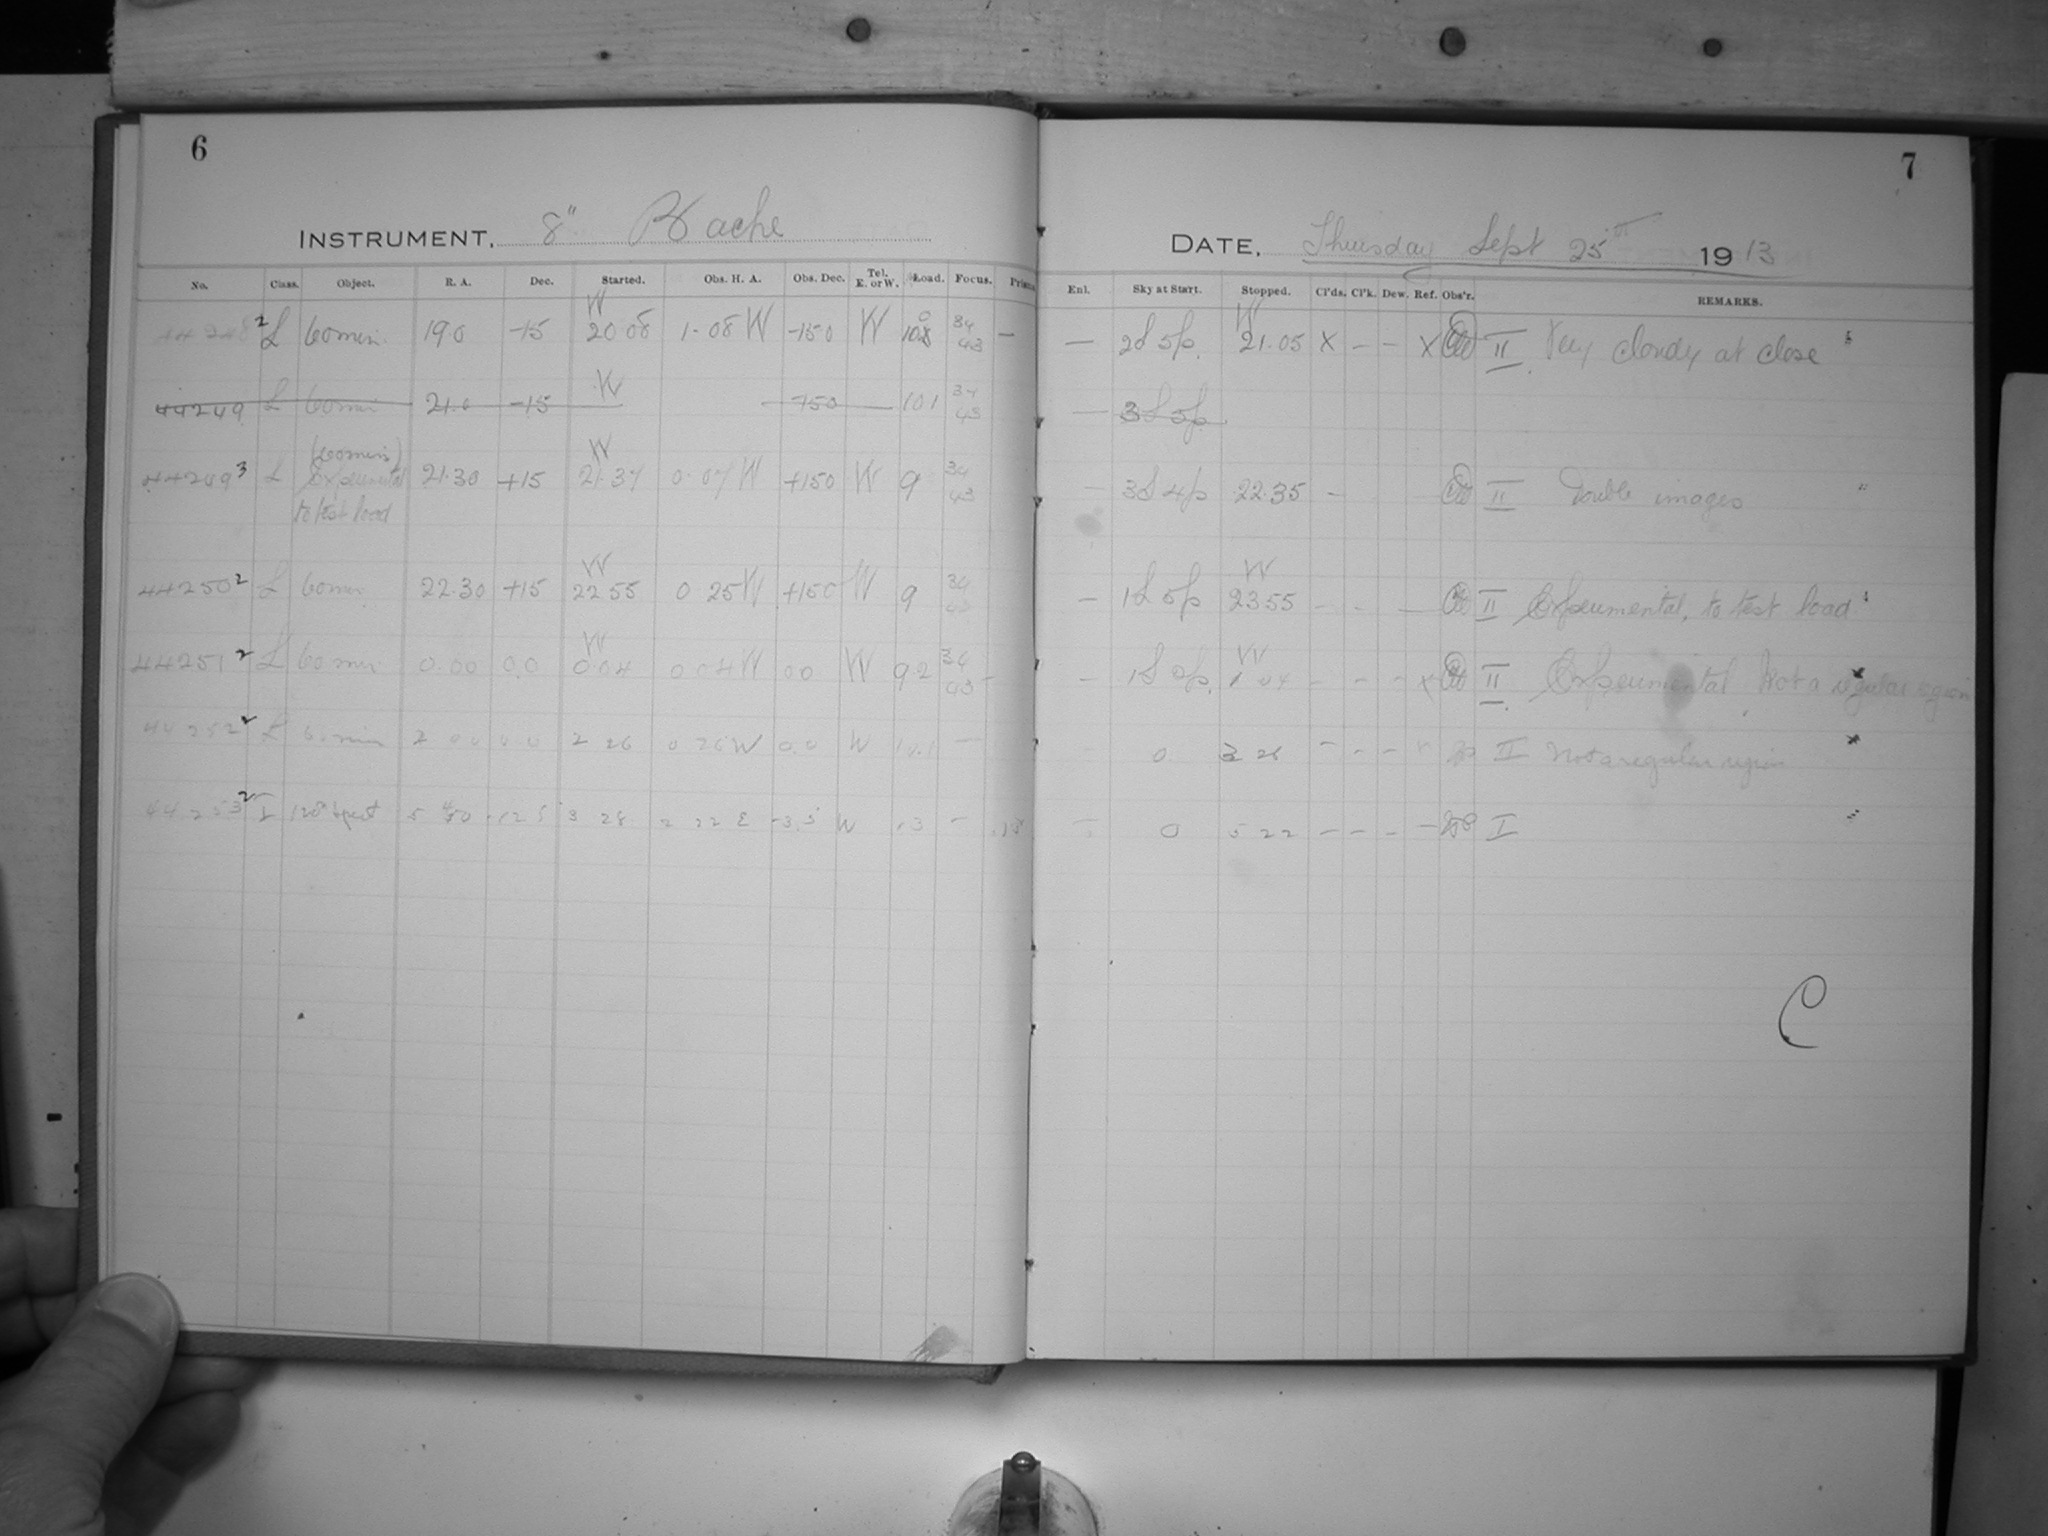 6
INSTRUMENT, 8" Bache
No. Class. Object. R. A. Dec. Started. Obs. H. A. Obs. Dec. Tel. E. or W. Load. Focus.
44248 2 L 60 min. 19 0 -15 W 20 08 1.08 W -150 W 34 43 —
44249 L 60 min 21.0 -15 W -150 101 34 43
44249 3 L (60 min) Experimental to test load 21.30 +15 W 21.37 0.07 W +150 W 9 34 43
44250 2 L 60 min 22.30 +15 W 22 55 0 25 W +150 W 9 34
44251 2 L 60 min 0.00 0.0 W 0.04 0 04 W 00 W 9.2 34 43 -
44252 2 L 60 min 2 00 0 0 2 26 0 26 W 0.0 W —
44253 2 I 3 28 2 22 E -3.5 W 13 -
7
DATE, Thursday Sept 25th 1913
Enl. Sky at Start. Stopped. Cl'ds. Cl'k. Dew. Ref. Obs'r. REMARKS.
— 2d 5p. W 21.05 X - - X II Very cloudy at close
— 3d 5p.
- 3d 4p 22.35 - II Double images
- 1d 5p W 23 55 - - - II Experimental, to test load
- W 1 04 - - - x II Experimental Not a regular region
0 3 26 - - - II Not a regular region
0 5 22 - - - - I
C